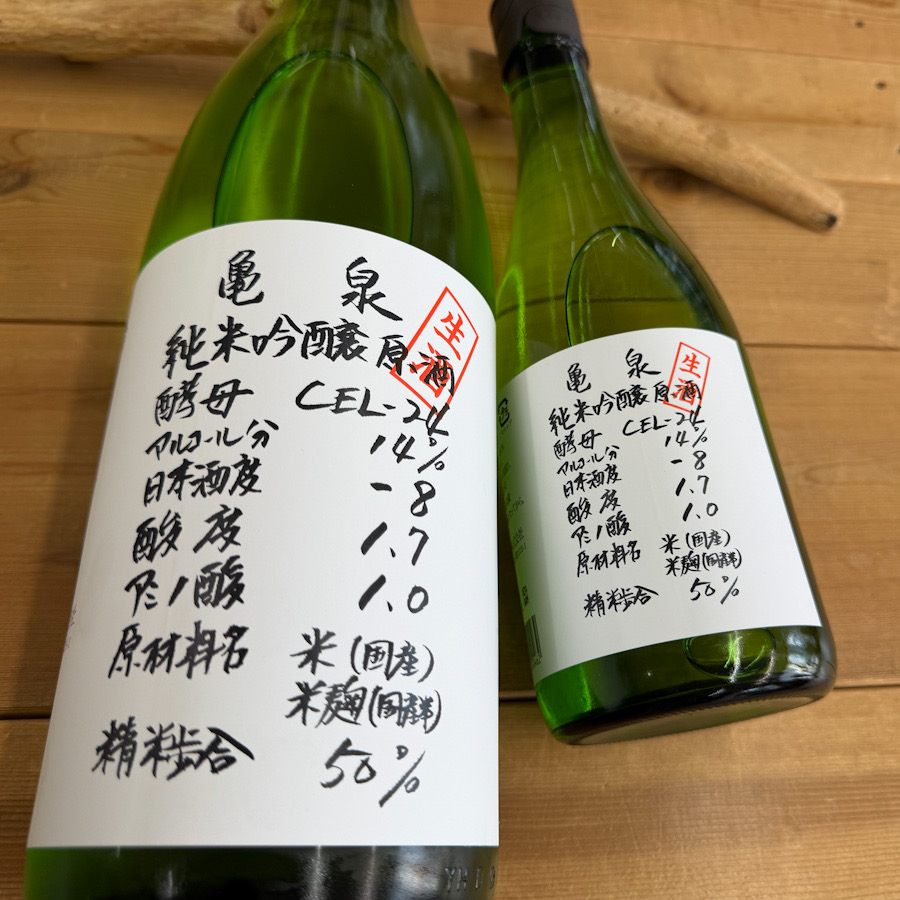 亀 泉
生酒
純米吟醸原酒
酵母 CEL-24
アルコール分 14%
日本酒度 -8
酸度 1.7
アミノ酸 1.0
原材料名 米(国産)
米麹(国産米)
精米歩合 50%
亀 泉
生酒
純米吟醸原酒
酵母 CEL-24
アルコール分 14%
日本酒度 -8
酸度 1.7
アミノ酸 1.0
原材料名 米(国産)
米麹(国産米)
精米歩合 50%